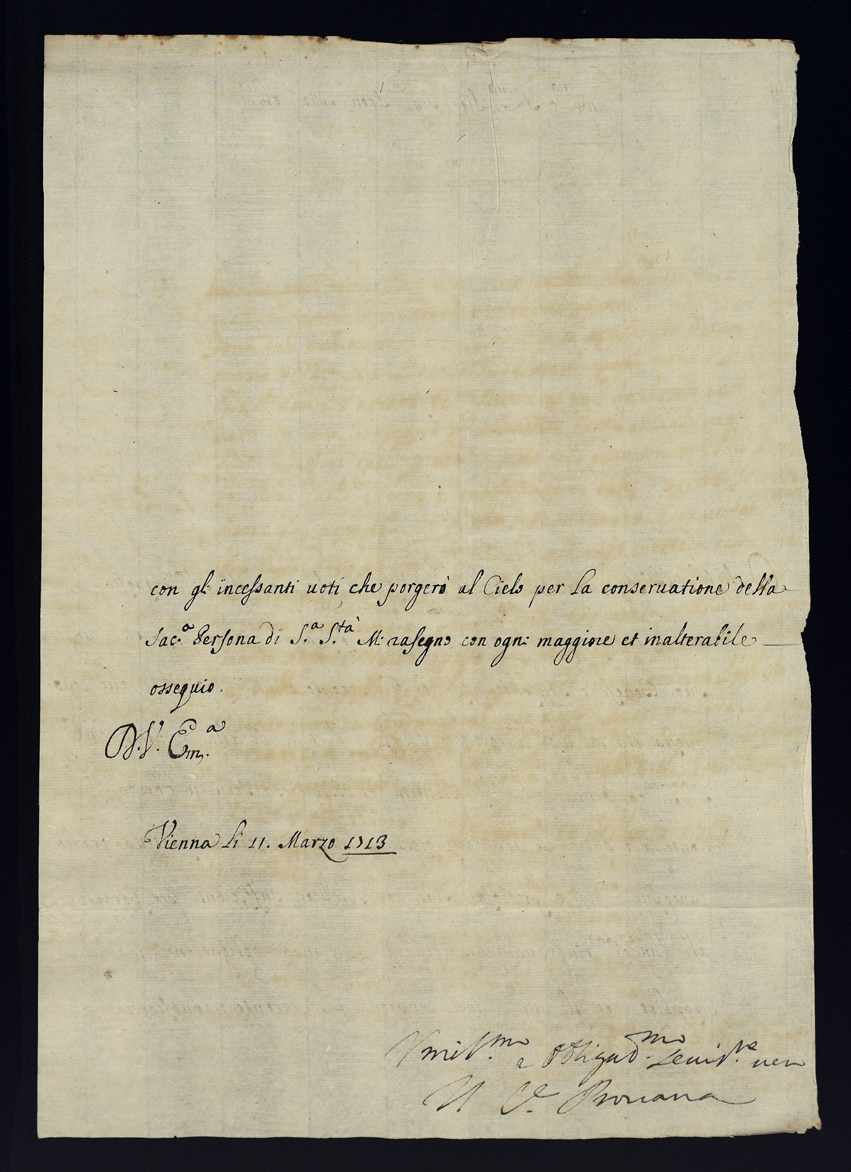 con gl' incessanti uoti, che porgerò al Cielo per la conseruatione della
Sac.ª Persona di S.ª S.tà M: rasegno con ogn: maggiore et inalterabile
ossequio.
D. V. Em.ª
Vienna li 11. Marzo 1713
Vmil.mo e obligad.mo Seruit.re uero
Il C.